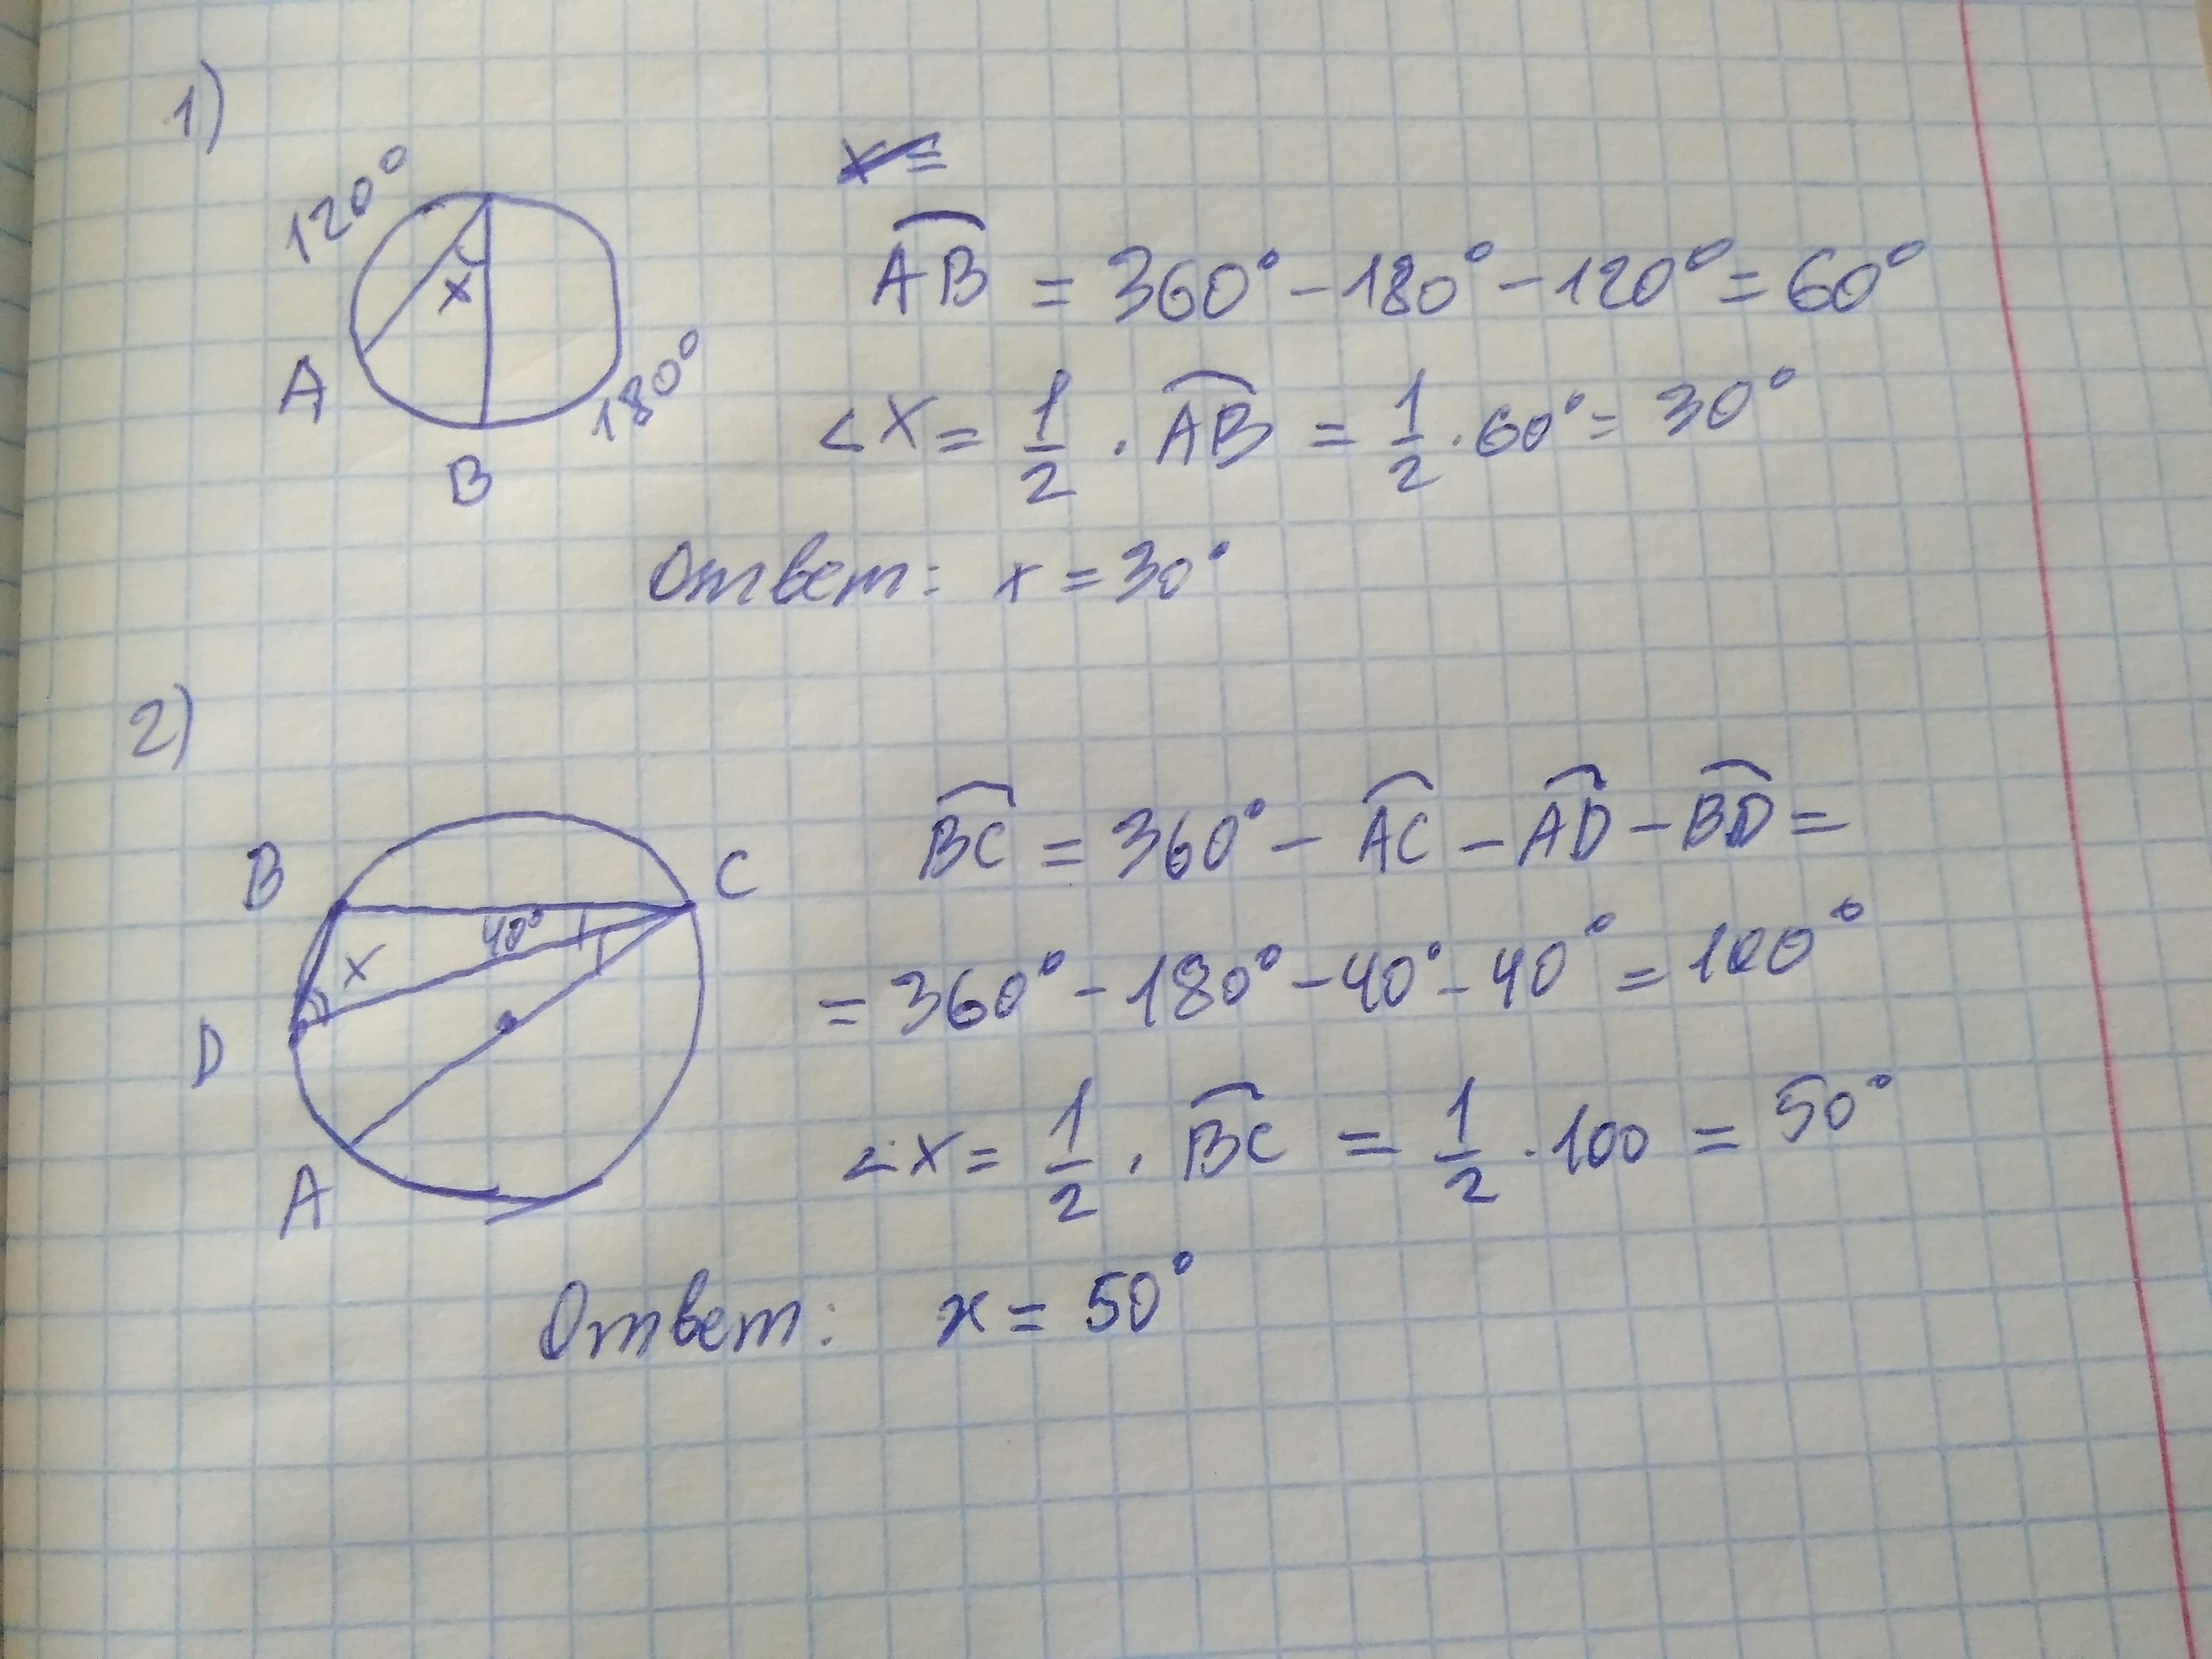 1)
120°
x
A
B
180°
x=
AB = 360° - 180° - 120° = 60°
<x = 1/2 · AB = 1/2 · 60° = 30°
Ответ: x = 30°
2)
B
C
40°
x
D
A
BC = 360° - AC - AD - BD =
= 360° - 180° - 40° - 40° = 100°
<x = 1/2 · BC = 1/2 · 100 = 50°
Ответ: x = 50°